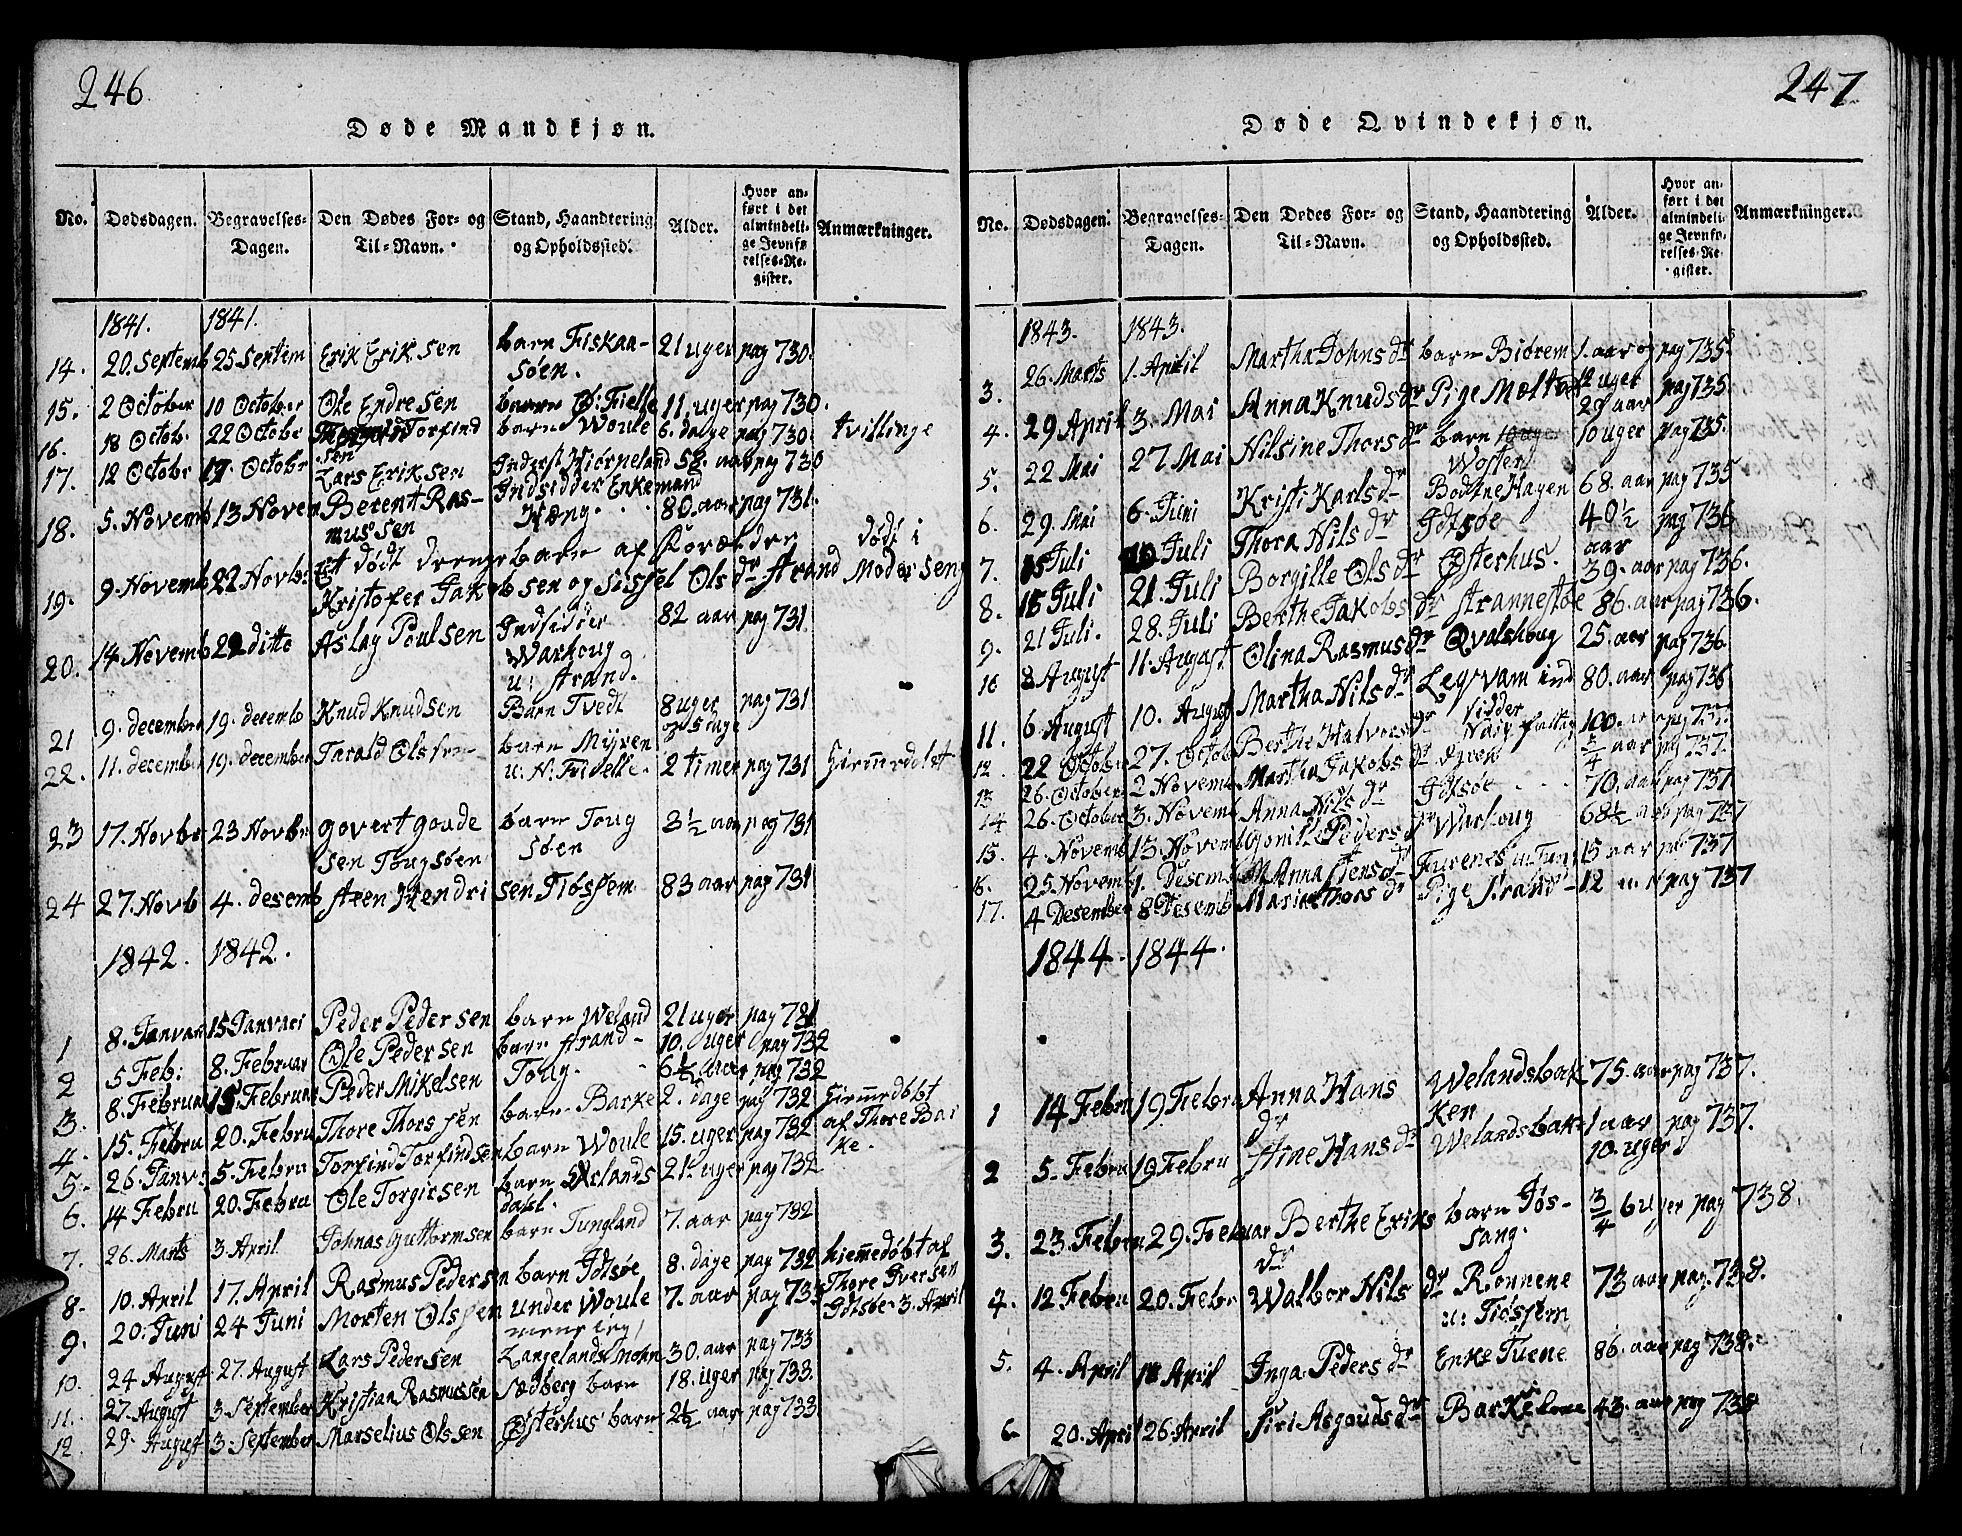 246
Døde Mandkjøn.
No. Dødsdagen. Begravelses-Dagen. Den Dødes For- og Til-Navn. Stand, Haandtering og Opholdssted. Alder. Hvor anført i det almindelige Jevnførelses-Register. Anmærkninger.
1841. 1841.
14. 20. Septemb 25 Septem Erik Eriksen barn Fiskaa- 21 uger pag 730.
søen.
15. 2 October 10 October Ole Endresen barn Ø: Fielle 11. uger pag 730.
16. 18 Octob. 22 Octobe Torfind barn Woule 6. dage pag 730. tvillinge
sen
17. 12 Octobr 17. Octobr Lars Eriksen Inderst Hiørpeland 58. aar pag 730
18. 5. Novemb 13 Novem Berent Ras- Indsidder Enkemand
mussen Hæng. 80. aar pag 731.
19. 9. Novemb 22 Novb: Et dødt drengebarn af Foreldre dødt i
Kristofer Jakobsen og Sissel Olsdr Strand Moders eng
20. 14. Novemb 22 ditto Aslag Poulsen Indsidder 82 aar pag 731
Warhoug
u: Strand.
21 9. december 19. decemb Knud Knudsen Barn Tvedt 8 uger pag 731
3 dage
22. 11. december 19. december Tarald Olssen barn Myren
u: N: Fidelle 2 timer pag 731 Hiemmedøbt
23 17. Novbr 23 Novbr Govert Goude barn Toug 3½ aar pag 731
sen Tougsøen søen
24 27. Novb 4. desemb Steen Hendrisen Tiøssem 83 aar pag 731
1842. 1842.
1 8. Januari 15 Januari Peder Pedersen barn Weland 21 uger pag 731
2 5 Feb: 8. Februar Ole Pedersen barn Strand 10. uger pag 732
3. 8. Februar 15 Februar Peder Mikelsen Toug. 6½ aar pag 732
4. 15. Febru 20. Febru Thore Thorssen barn Barke 2. dage pag 732 Hiemmedøbt
af Thore Bar
ke.
5. 26. Janv: 5. Febru Torfind Torfindsen barn Woule 15. uger pag 732
6. 14 Febru 20. Febru Ole Torgiesen barn Ørlands 21. uger pag 732
dahl.
7. 26. Marts 3. April Johnas Guttormsen barn Tungland 7. aar pag 732
8. 10. April 17. April Rasmus Pedersen barn Idtsøe 8. dage pag 732 hiemmedøbt af
Thore Iversen
Idtsøe 3. April
9. 20. Juni 24 Juni Morten Olssen under Woule 7. aar pag 733
10. 24 August 27. August Lars Pedersen Langelands Mohn 30. aar pag 733
11. 27. August 3. September Kristian Rasmussen Sædberg barn 18. uger pag 733.
12. 29. August 3. September Marselius Olssen Østerhus barn 2½ aar pag 733.
247
Døde Qvindekjøn.
No. Dødsdagen. Begravelses-Dagen. Den Dødes For- og Til-Navn. Stand, Haandtering og Opholdssted. Alder. Hvor anført i det almindelige Jevnførelses-Register. Anmærkninger.
1843. 1843.
3. 26. Marts 1. April Martha Johnsdr barn Biørem 1. aar og pag 735.
12 uger
4. 29 April 3. Mai Anna Knudsdr Pige 29 aar pag 735
5. 22 Mai 27 Mai Nilsine Thorsdr barn 10 uger pag 735.
6. 29. Mai 6. Juni Kristi Karlsdr Bodtne Hagen 68. aar pag 735
7. 15 Juli 20 Juli Thora Nilsdr Idtsøe 40½ pag 736
aar
8. 15 Juli 21. Juli Borgille Olsdr Østerhus. 39. aar pag 736.
9. 21 Juli. 28. Juli Berthe Jakobsdr Strannestøe 86. aar pag 736.
10 8 August 11. August Olina Rasmusdr Qvalshoug 25. aar pag 736
11. 6. August 10. August Martha Nilsdr Legvam ind 80. aar pag 736
sidder
12. 22 October 27. Octob Berthe Halvorsdr 100. aar
13 26. October 2 Novemb Martha Jakobsdr ¾ aar pag 737.
14 26. October 3. Novemb Anna Nilsdr Idtsøe 70. aar pag 737
15. 4. Novemb 13. Novemb Gomile Pedersdr Warhoug 68½ aar pag 737
16. 25. Novemb 1. Desemb Anna Stensdr 15 aar pag 737
17. 4 Desember 8 Desemb Marie Thorsdr Pige Strand 12 aar pag 737
1844. 1844.
1 14 Febru 19. Febru Anna Hans Welandsbak 75. aar pag 737.
dr ken
2 5. Febru 19 Febru Arne Hansdr Welandsbak 1 aar pag 737.
10. uger
3. 23. Febru 29. Februar Berthe Eriks barn Jøs- ¾ 6 uger pag 738.
dr sang.
4. 12 Febru 20. Febr Walbor Nilsdr Ronnene 73 aar pag. 738.
u: Tiøssem
5. 4. April 18 April Inga Pedersdr Enke Tuene 86. aar pag 738.
6. 20. April 26. April Siri Asgoudsdr Barke kone 43. aar pag 738